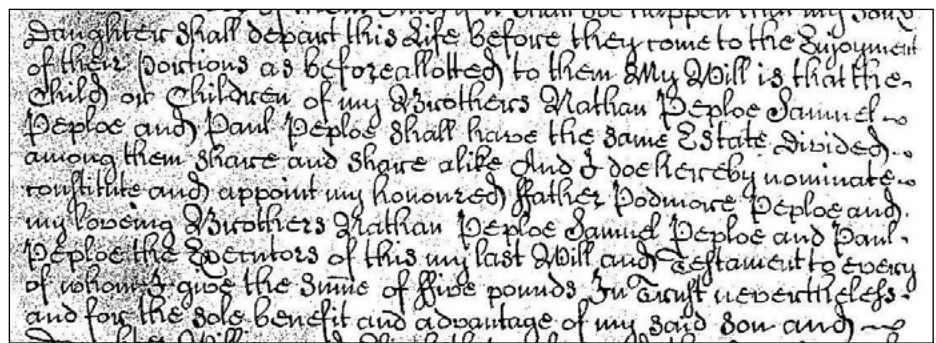 of them Child if it shall soe happen that my Son &
Daughter shall depart this Life before they come to the Enjoyment
of their Portions as before allotted to them My Will is that the
Child or Children of my Brothers Nathan Peploe Samuel
Peploe and Paul Peploe shall have the same Estate divided
among them share and share alike And I doe hereby nominate
constitute and appoint my honoured ffather Podmore Peploe and
my loveing Brothers Nathan Peploe Samuel Peploe and Paul
Peploe the Executors of this my last Will and Testament to every
of whom I give the Sum̅e of ffive pounds In Trust nevertheless
and for the sole benefit and advantage of my said Son and